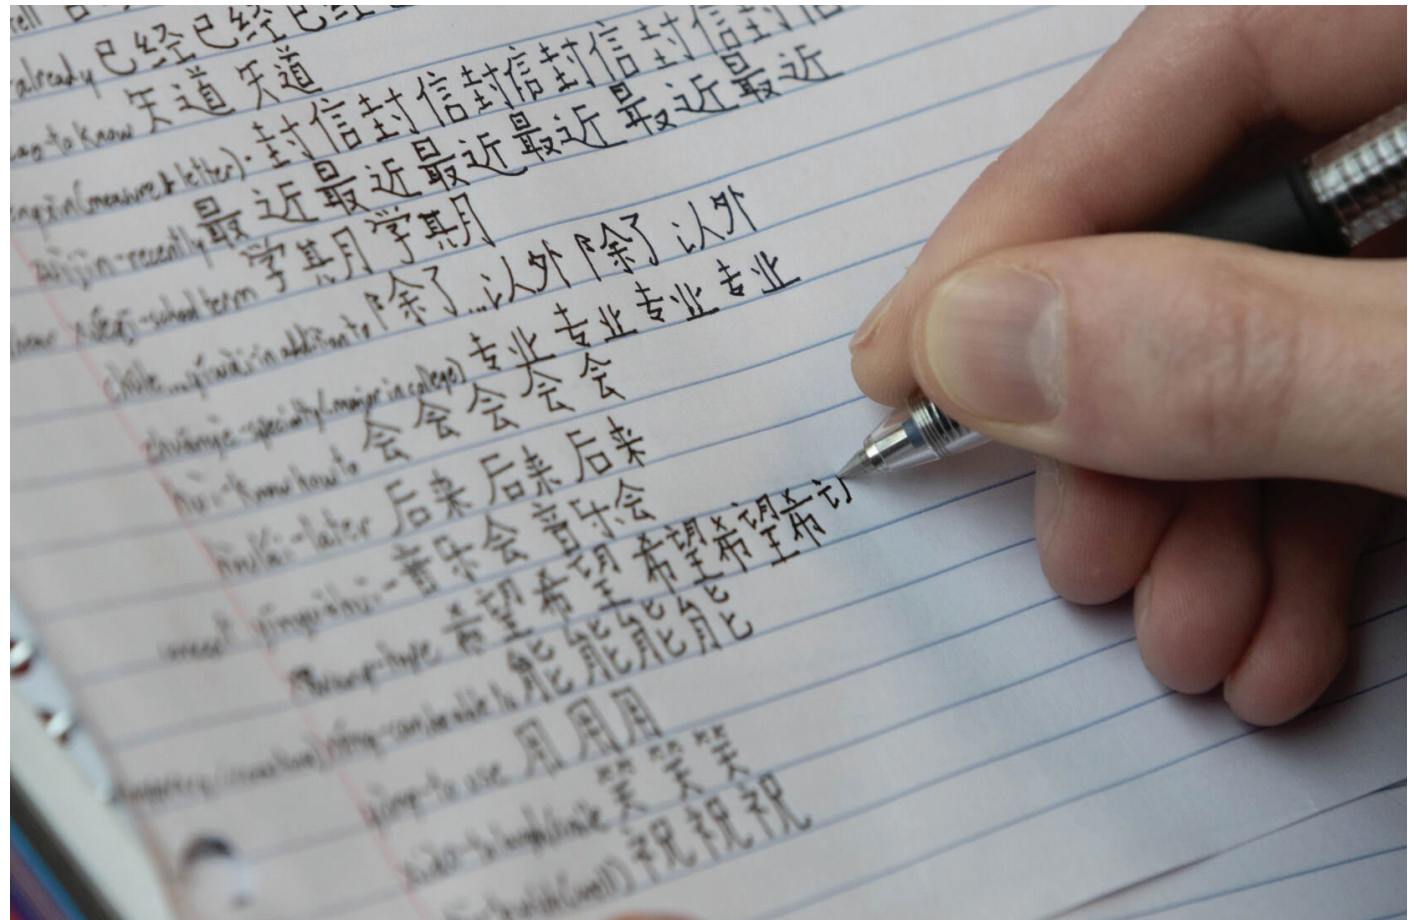 already 已经已经已
to know 知道 知道
(measure letter). 封信封信封信封信封信封信
zuìjìn-recently 最近最近最近最近最近最近
xuéqī-school term 学期学期
chúle...yǐwài-in addition to 除了...以外 除了 以外
zhuānyè-specialty (major in college) 专业专业专业专业
huì-know how to 会会会会会
hòulái-later 后来后来后来
yīnyuèhuì-音乐会音乐会
hope 希望希望希望希望希
néng-can be able to 能能能能
yòng-to use 用用用
xiào-to laugh/smile 笑笑笑
(well) 祝祝祝